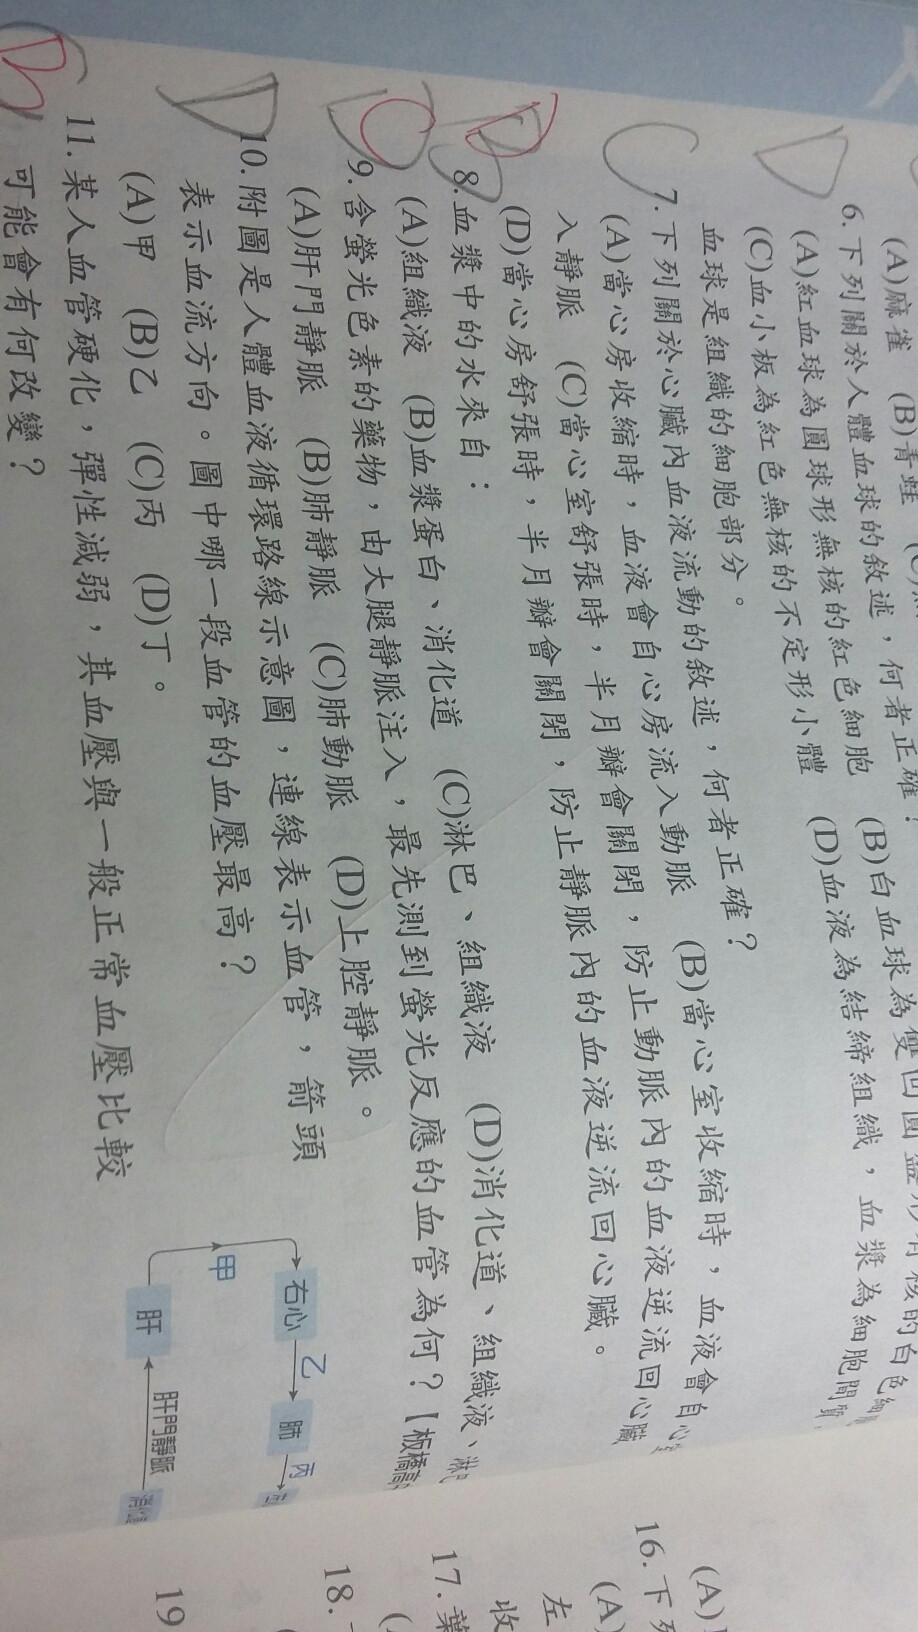 (A)麻雀 (B)青蛙
D 6.下列關於人體血球的敘述，何者正確？
(A)紅血球為圓球形無核的紅色細胞 (B)白血球為雙凹圓盤形有核的白色細胞
(C)血小板為紅色無核的不定形小體 (D)血液為結締組織，血漿為細胞間質，
血球是組織的細胞部分。
C 7.下列關於心臟內血液流動的敘述，何者正確？
(A)當心房收縮時，血液會自心房流入動脈 (B)當心室收縮時，血液會自心室
入靜脈 (C)當心室舒張時，半月瓣會關閉，防止動脈內的血液逆流回心臟
(D)當心房舒張時，半月瓣會關閉，防止靜脈內的血液逆流回心臟。
D 8.血漿中的水來自：
(A)組織液 (B)血漿蛋白、消化道 (C)淋巴、組織液 (D)消化道、組織液、淋巴
C 9.含螢光色素的藥物，由大腿靜脈注入，最先測到螢光反應的血管為何？【板橋高
(A)肝門靜脈 (B)肺靜脈 (C)肺動脈 (D)上腔靜脈。
D 10.附圖是人體血液循環路線示意圖，連線表示血管，箭頭
表示血流方向。圖中哪一段血管的血壓最高？
(A)甲 (B)乙 (C)丙 (D)丁。
B 11.某人血管硬化，彈性減弱，其血壓與一般正常血壓比較
可能會有何改變？
右心 乙 肺 丙
甲
肝 肝門靜脈
(A)
16.下列
(A)
左
收
17.葉
18.
19